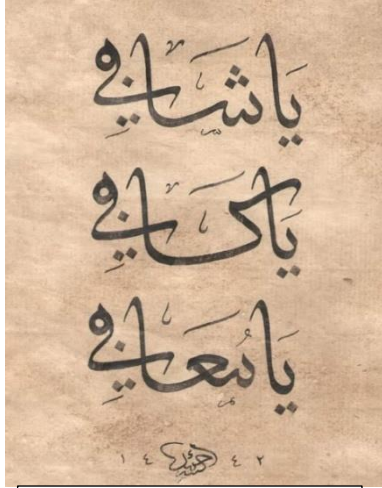 يَا شَافِي
يَا كَافِي
يَا مُعَافِي
١٤ ٤٢